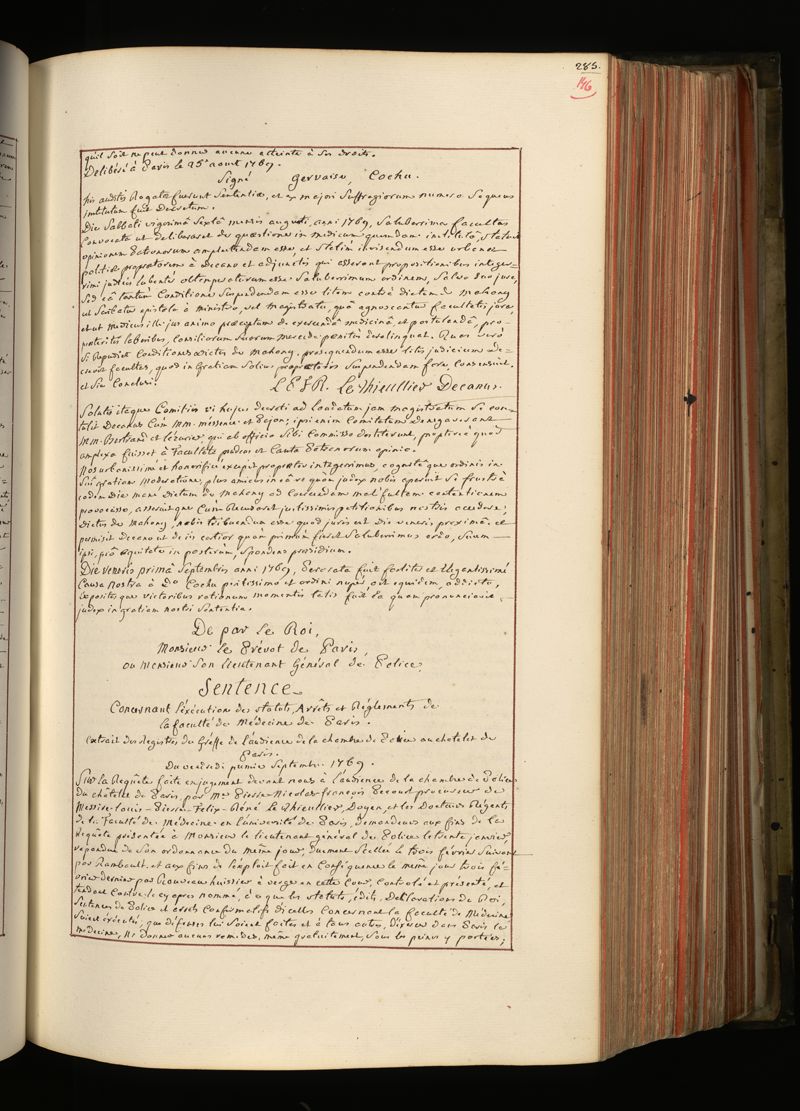 285.
146
qu'il soit ne peut donner aucune atteinte à ses droits.
Délibéré à Paris le 25 aout 1769.
Signé Gervaise, Cochu.
his auditis Rogatæ fuerunt Sententiæ, et ex majori Suffragiorum numero Sequens
institutum fuit Decretum.
Die Sabbati vigesimâ Sextâ mensis augusti, anni 1769, Saluberrima facultas
Convocata ut deliberaret de quæstione in medicum quemdam institutâ, Statuit
opinionem Patronorum amplectendam esse, et Statim invisendum esse urbanæ
politiæ præpositorum à Decano et adjunctis qui asserant propositionibus integer-
rimi judicis lubenter obtemperaturum esse Saluberrimum ordinem, Salvo suo jure,
Sed eâ tantùm Conditione Suspendendam esse litem contrà dictum de Mahony
ut Scribatur epistola à ministro, vel magistratu, quâ agnoscantur facultatis jura,
et ut medicus ille jus animo præceptum de exercendâ medicinâ, et postulandâ, pro-
præteritis laboribus, consiliorum suorum mercede penitùs derelinquat. Quas verò
Si Repudiet Conditiones dictus de Mahony, prosequendum esse litis judicium de-
crevit facultas, quod in gratiam Solius præpositi Suspendendum fore, consensit.
et Sic Conclusi. L. P. F. R. Le Thieullier Decanus.
Solutis itaque Comitiis vi hujus decreti ad laudatum jam magistratum Se con-
tulit Decanus Cum mm. messence et Pejon; ipsi enim Comitatum denegaverant
mm. Bertrand et lecurier, qui ab officio Sibi Commisso destiterunt, proptereà quod
amplexa fuisset à facultate prudens et Cauta Patronorum opinio.
Nos urbanissimè et honorificè excepit præpositus integerrimus, cognitâ que ordinis in
Sui gratiam moderatione, plus amicus in eâ re quam judex nobis aperuit Se frustrà
eodem Die manè dictum de Mahony ad
provocasse, asseruit que Cùm Renuerit justissimis petitionibus nostris accedere,
dictus de Mahony, nobis tribuendum esse quod juris est die veneris proximâ. et
permisit Decano ut de iis certior quàm primùm fieret Saluberrimus ordo, Suum
ipsi, pro æquitate in posterùm, Spondens præsidium.
Die veneris primâ Septembris anni 1769, Perorata fuit fortiter et elegantissimè
Causa nostra à Do. Cochu peritissimo et ordini nuper ut equidem, addicto,
expositis que victoribus rationum momentis talis fuit la quam pronunciavit
judex in gratiam nostri Sententia.
De par le Roi,
Monsieur le Prévot de Paris,
ou Monsieur Son lieutenant Général de Police,
Sentence
Concernant l'éxécution des Statuts, Arrêts et Réglements de
la faculté de Médecine de Paris.
Extrait des Registres du Greffe de l'audience de la chambre de Police au chatelet de
Paris.
Du vendredi premier Septembre 1769.
Sur la Requête faite en jugement devant nous à l'audience de la chambre de Police
du châtelet de Paris, par Me Pierre-Nicolas-françois Pecourt procureur de
Messire louis-Pierre-Felix-Réné Le Thieullier, Doyen, et les Docteurs Régents
de la faculté de Médecine en l'université de Paris, demandeurs aux fins de la
Requête présentée à Monsieur le lieutenant général de Police le trente janvier,
répondue de Son ordonnance du même jour, duement Scellée le trois février Suivant
par Rambault, et aux fins de l'exploit fait en Conséquence le même jour trois fé-
vrier dernier par Prouveau huissier à verge en cette Cour, Controlé et présenté, et
tendant Contre le cy après nommé, à ce que les Statuts, édits, Déclarations du Roi,
Sentences de Police et arrêts Confirmatifs d'icelles Concernant la faculté de Médecine
Soient éxécutés, que défenses lui Soient faites et à tous autres, d'éxercer dans Paris la
médecine, Ni donner aucuns remedes, même gratuitement, Sous les peines y portées;